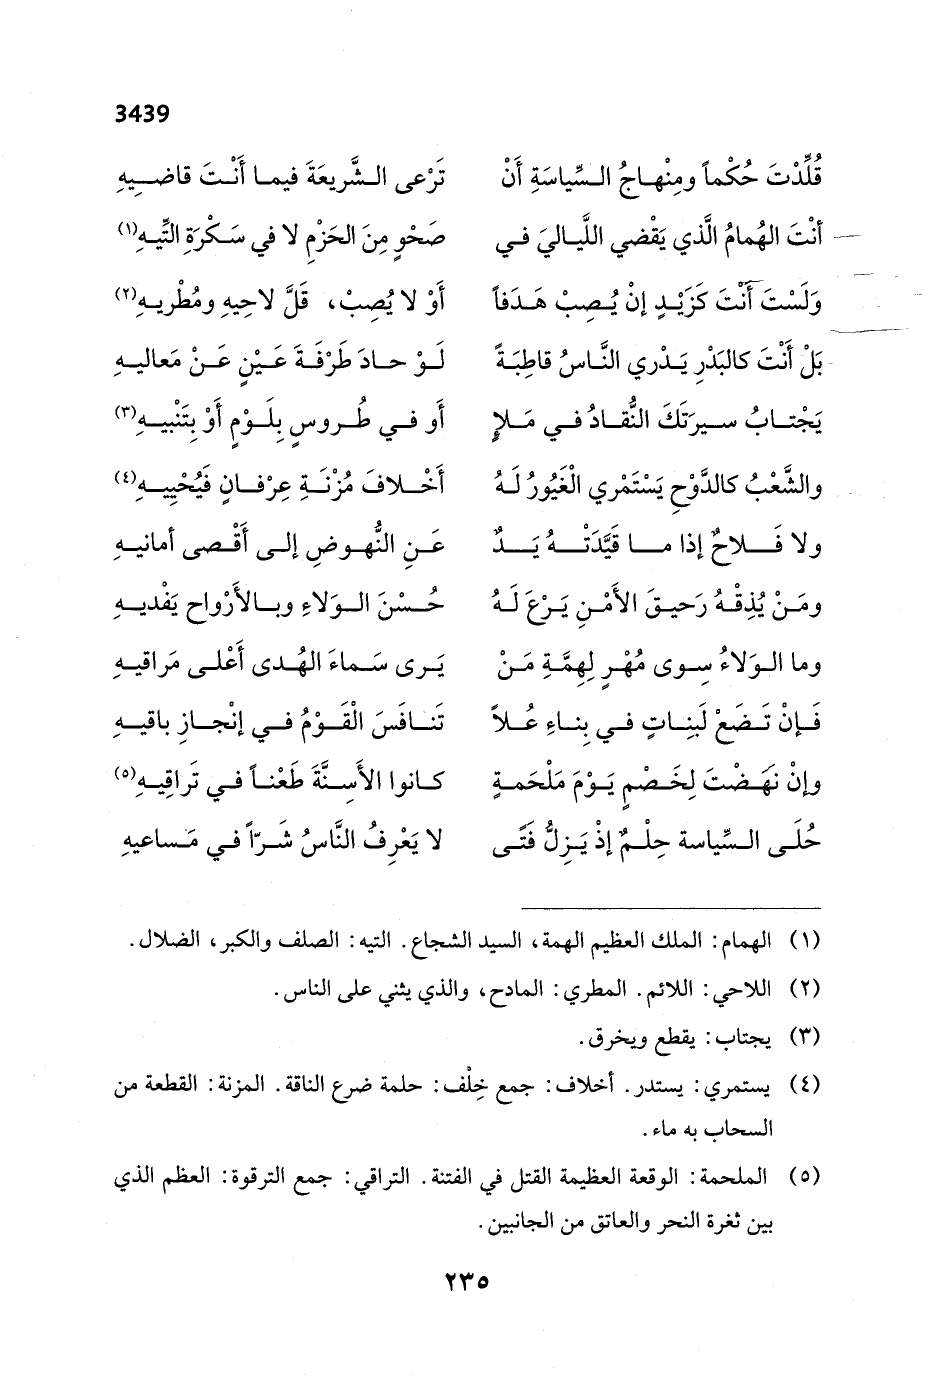 3439
قُلِّدْتَ حُكْماً ومِنْهاجُ السِّياسَةِ أَنْ تَرْعى الشَّريعَةَ فيما أَنْتَ قاضيهِ
أنْتَ الهُمامُ الَّذي يَقْضي اللَّيالِيَ في صَحْوٍ مِنَ الحَزْمِ لا في سَكْرَةِ التِّيهِ(١)
وَلَسْتَ أَنْتَ كَزَيْدٍ إنْ يُصِبْ هَدَفاً أوْ لا يُصِبْ، قَلَّ لاحِيهِ ومُطْريهِ(٢)
بَلْ أَنْتَ كالبَدْرِ يَدْري النَّاسُ قاطِبَةً لَوْ حادَ طَرْفَةَ عَيْنٍ عَنْ مَعاليهِ
يَجْتابُ سيرَتَكَ النُّقادُ في مَلإٍ أو في طُروسٍ بِلَوْمٍ أوْ بِتَنْبيهِ(٣)
والشَّعْبُ كالدَّوْحِ يَسْتَمْري الْغَيُورُ لَهُ أَخْلافَ مُزْنَةِ عِرْفانٍ فَيُحْيِيهِ(٤)
ولا فَلاحٌ إذا ما قَيَّدَتْهُ يَدٌ عَنِ النُّهوضِ إلى أَقْصى أمانيهِ
ومَنْ يُذِقْهُ رَحيقَ الأَمْنِ يَرْعَ لَهُ حُسْنَ الوَلاءِ وبالأَرْواحِ يَفْديهِ
وما الوَلاءُ سوى مُهْرٍ لِهِمَّةِ مَنْ يَرى سَماءَ الهُدى أَعْلى مَراقيهِ
فَإنْ تَضَعْ لَبِناتٍ في بِناءِ عُلاً تَنافَسَ الْقَوْمُ في إنْجازِ باقيهِ
وإنْ نَهَضْتَ لِخَصْمٍ يَوْمَ مَلْحَمةٍ كانوا الأَسِنَّةَ طَعْناً في تَراقِيهِ(٥)
حُلَى السِّياسة حِلْمٌ إذْ يَزِلُّ فَتًى لا يَعْرِفُ النَّاسُ شَرّاً في مَساعيهِ
(١) الهمام: الملك العظيم الهمة، السيد الشجاع. التيه: الصلف والكبر، الضلال.
(٢) اللاحي: اللائم. المطري: المادح، والذي يثني على الناس.
(٣) يجتاب: يقطع ويخرق.
(٤) يستمري: يستدر. أخلاف: جمع خِلْف: حلمة ضرع الناقة. المزنة: القطعة من
السحاب به ماء.
(٥) الملحمة: الوقعة العظيمة القتل في الفتنة. التراقي: جمع الترقوة: العظم الذي
بين ثغرة النحر والعاتق من الجانبين.
٢٣٥